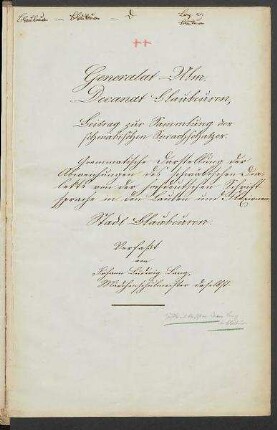 Blaubeuren — Blaubeuren
Generalat Ulm
Decanat Blaubeuren,
Beitrag zur Sammlung des
schwäbischen Sprachschatzes.
Grammatische Darstellung der
Abweichungen des schwäbischen Dia-
lekts von der hochdeutschen Schrift
sprache in den Lauten und Flexionen
Stadt Blaubeuren
Verfaßt
von
Johann Ludwig Lang,
Mädchenschulmeister daselbst.